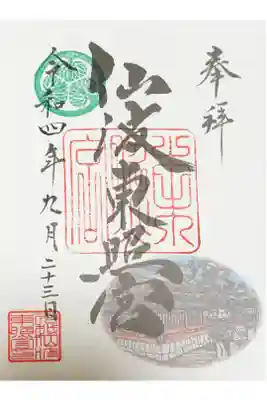 奉拝
仙波東照宮
令和四年九月二十三日